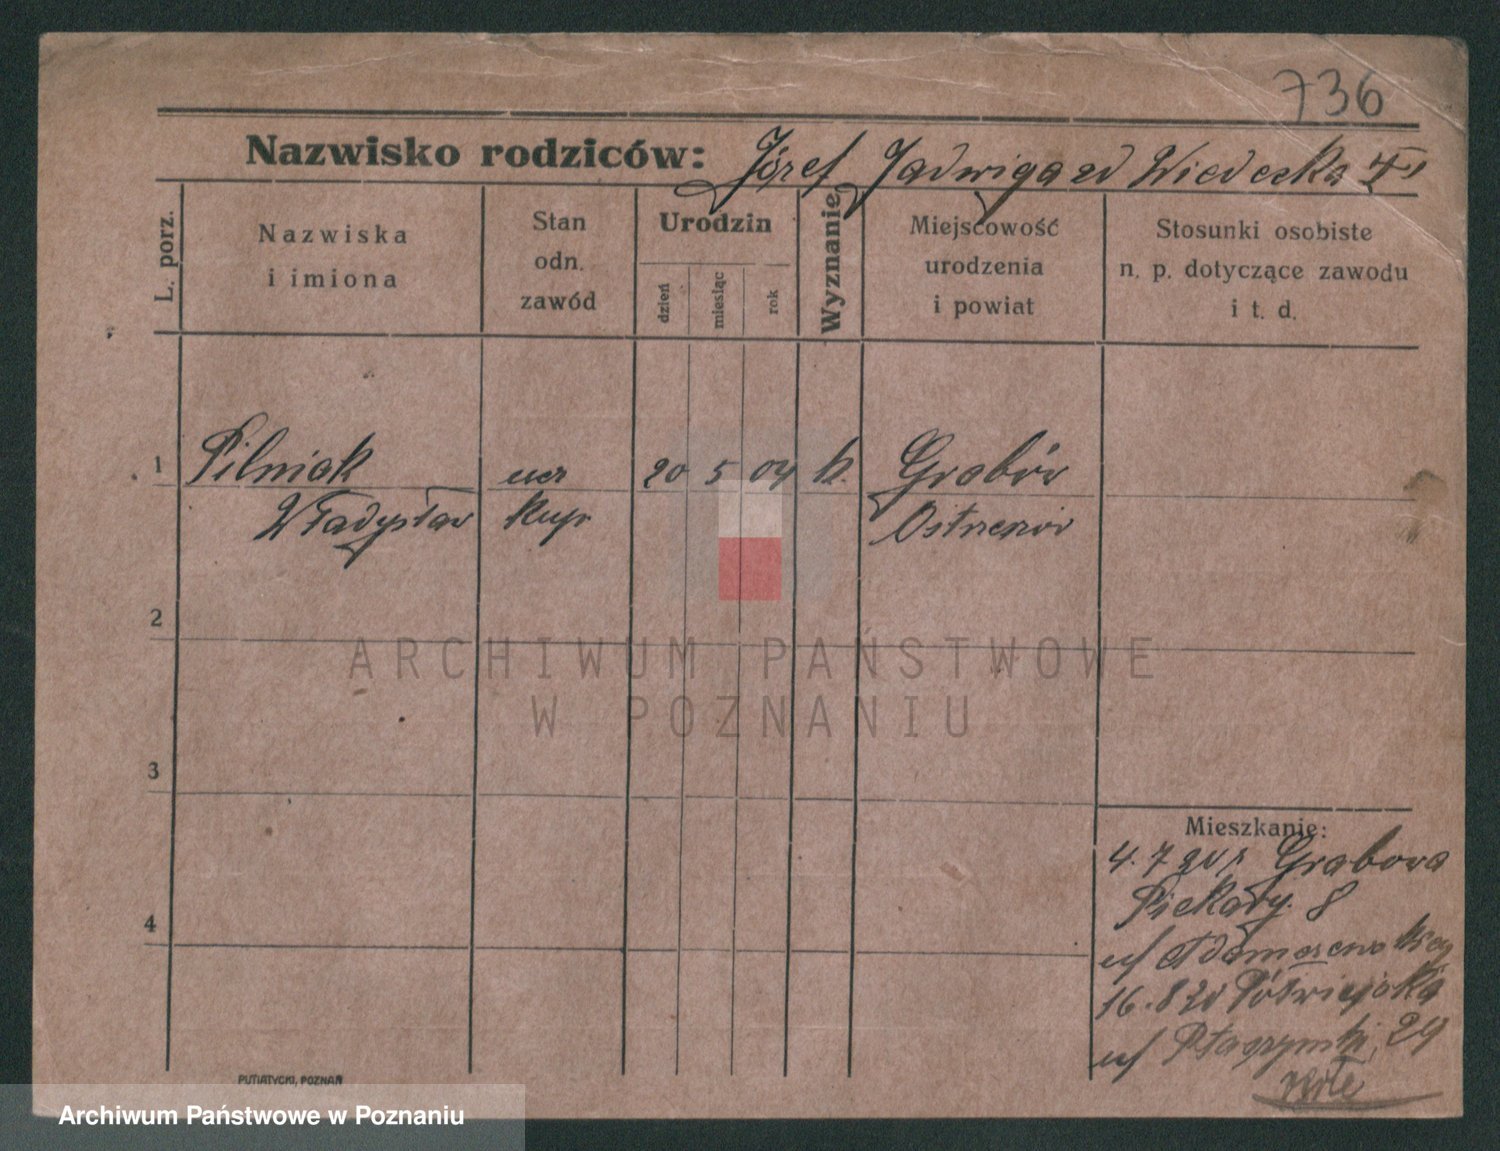 736
Nazwisko rodziców: Józef Jadwiga zd Wiedecka
L. porz.
Nazwiska
i imiona
Stan
odn.
zawód
Urodzin
dzień
miesiąc
rok
Wyznanie
Miejscowość
urodzenia
i powiat
Stosunki osobiste
n. p. dotyczące zawodu
i t. d.
1 Pilniak ucz 20 5 04 k. Grabów
Władysław kup Ostrzeszów
2
ARCHIWUM PAŃSTWOWE
W POZNANIU
3
Mieszkanie:
4. 7 20 z Grabowa
Piekary. 8
4
16. 8 20 Półwiejska
29
PUTIATYCKI, POZNAŃ
Archiwum Państwowe w Poznaniu